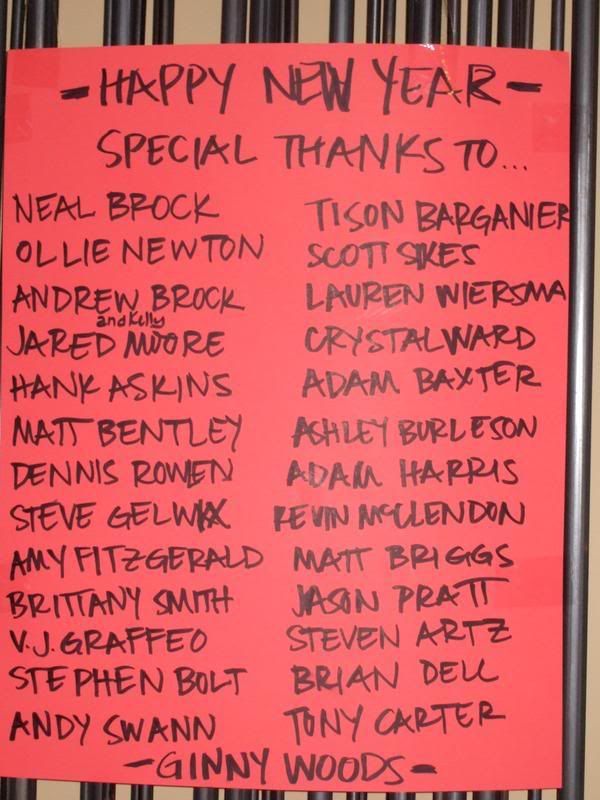 -HAPPY NEW YEAR-
SPECIAL THANKS TO...
NEAL BROCK
OLLIE NEWTON
ANDREW BROCK
and Kelly
JARED MOORE
HANK ASKINS
MATT BENTLEY
DENNIS ROWEN
STEVE
AMY FITZGERALD
BRITTANY SMITH
V.J. GRAFFEO
STEPHEN BOLT
ANDY SWANN
TISON BARGANIER
SCOTT SIKES
LAUREN WIERSMA
CRYSTAL WARD
ADAM BAXTER
ASHLEY BURLESON
ADAM HARRIS
KEVIN McCLENDON
MATT BRIGGS
JASON PRATT
STEVEN ARTZ
BRIAN DELL
TONY CARTER
-GINNY WOODS-